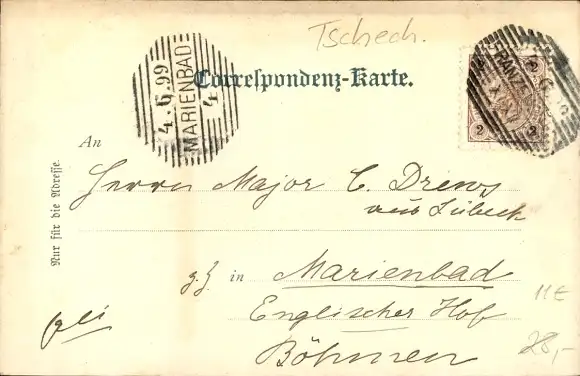 Tschech.
4.6.99
MARIENBAD
4
FRANZE
2 2
Correspondenz-Karte.
An
Herrn Major C. Drews
aus Lübeck
z. Z in Marienbad
Englischer Hof
Böhmen
Nur für die Adresse.
11E
28,-